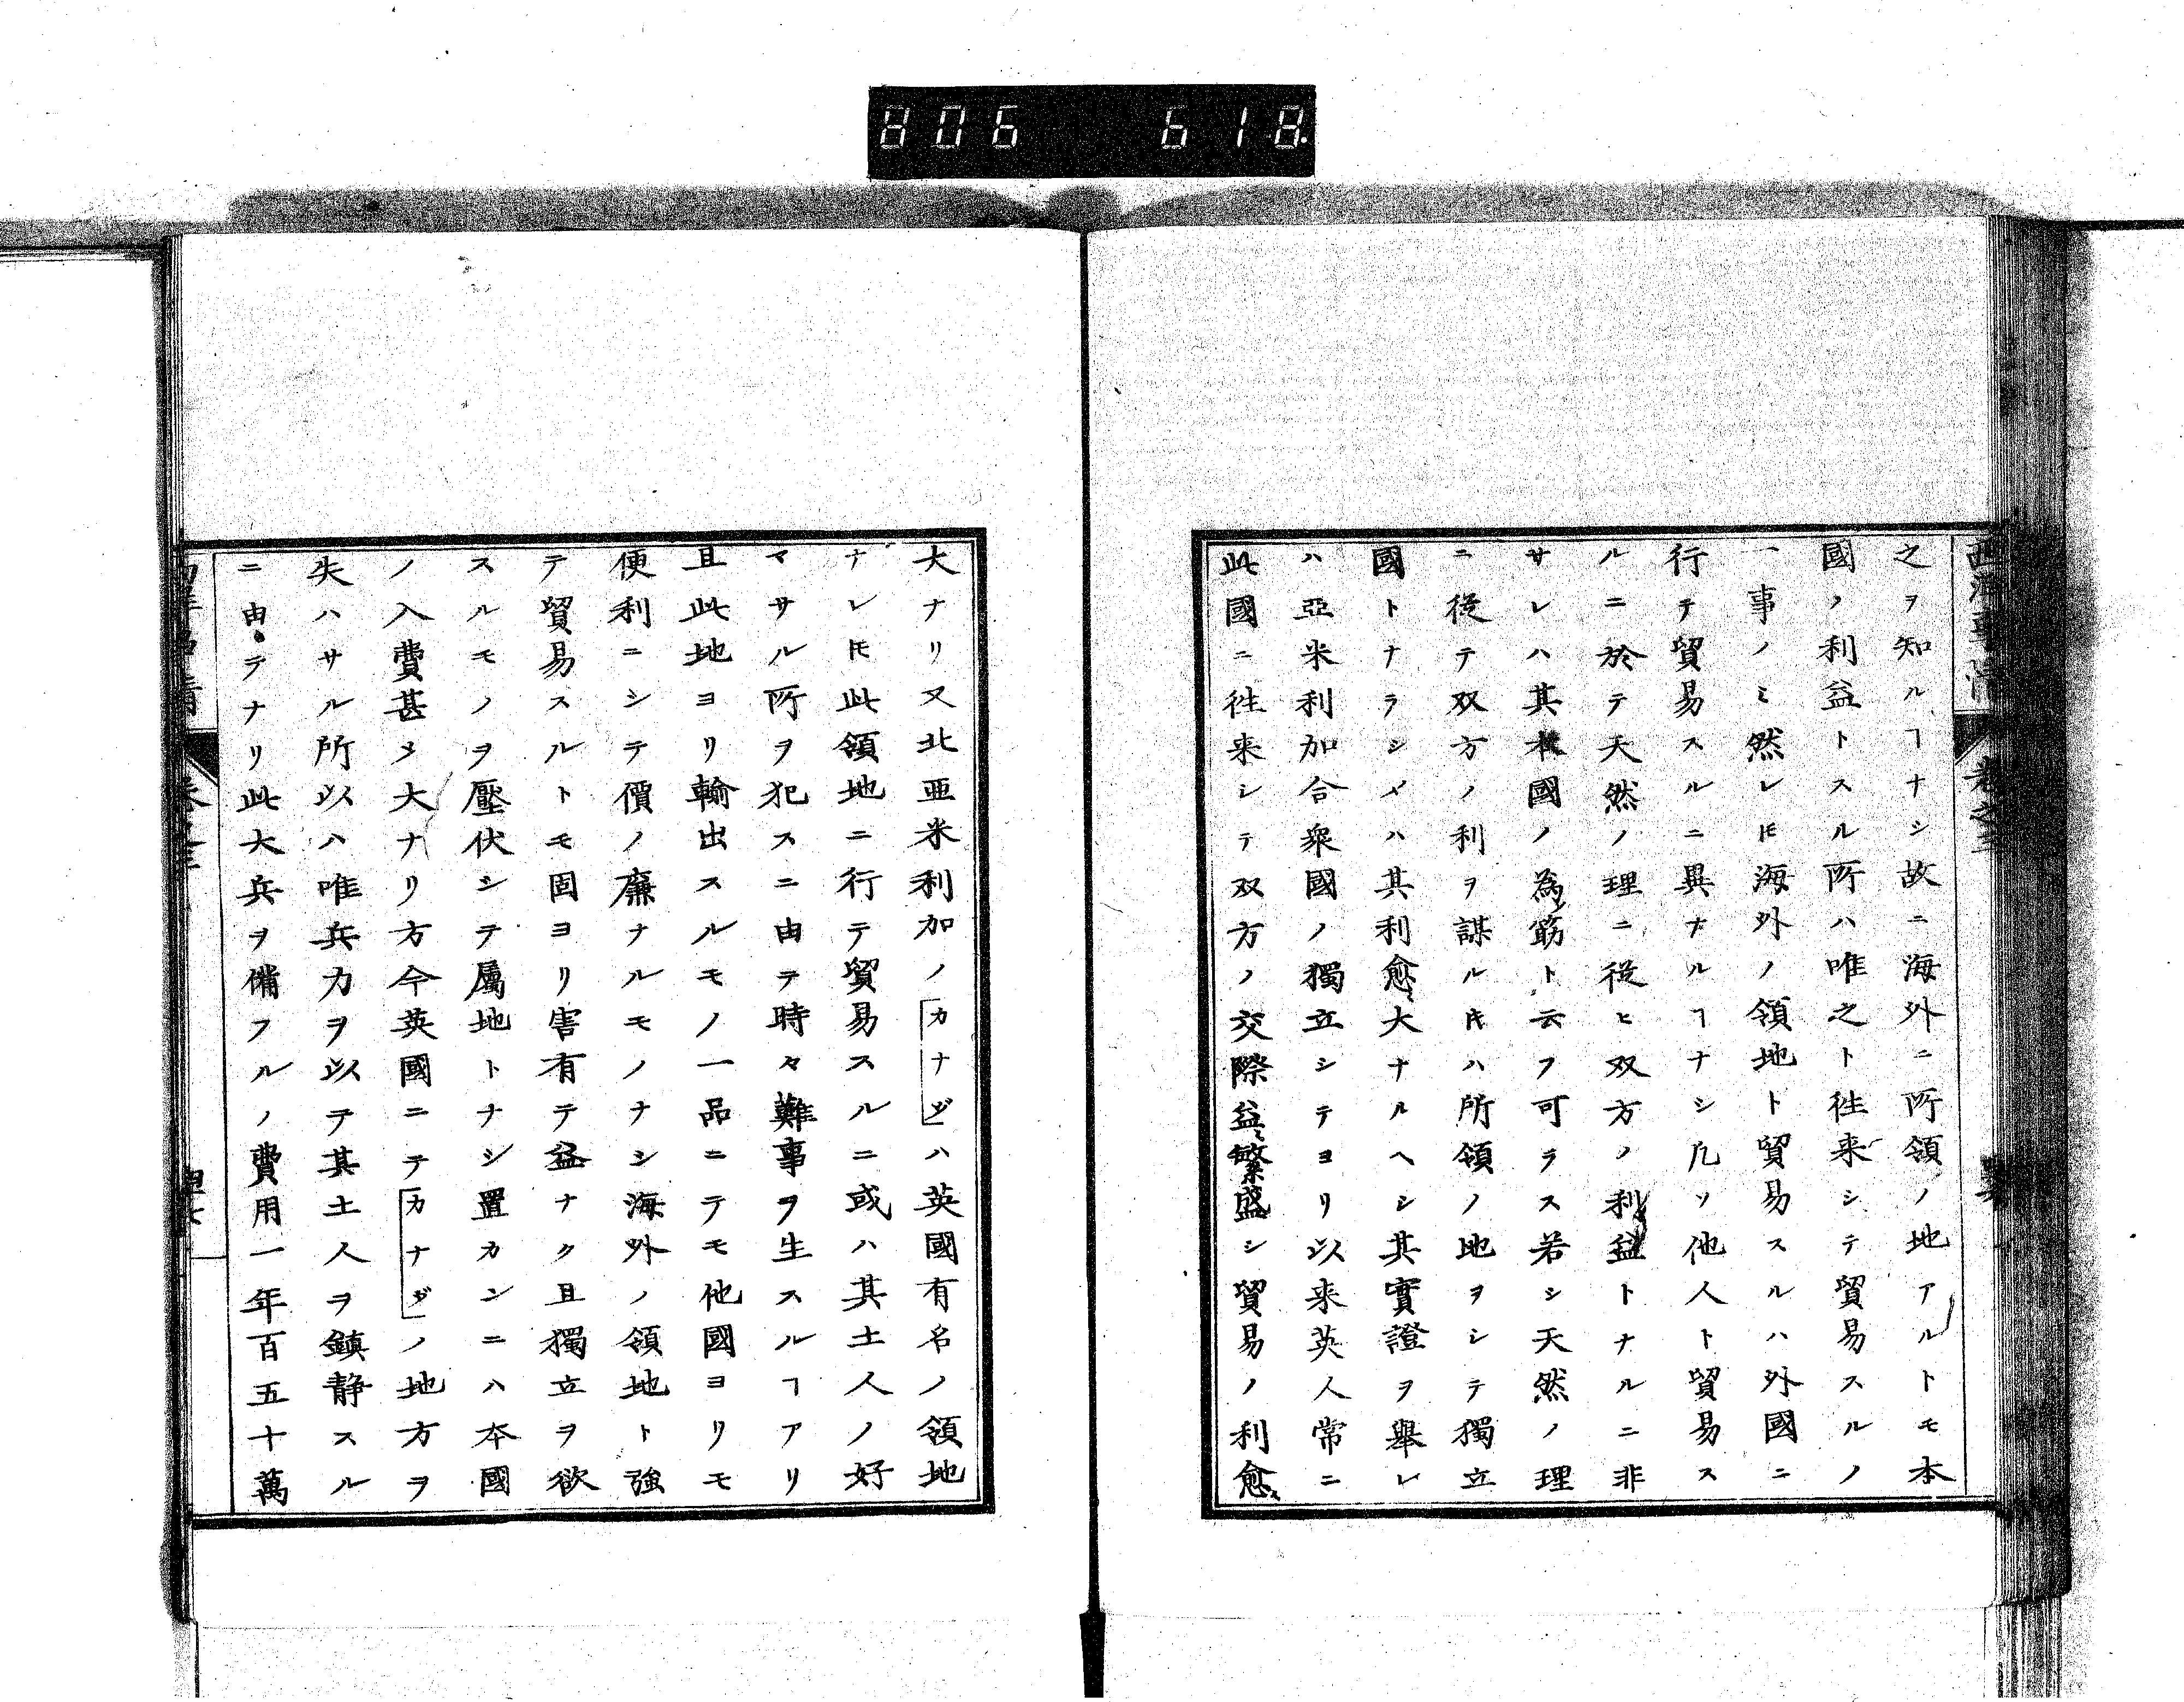 806 618
之ヲ知ルヿナシ故ニ海外ニ所領ノ地アルトモ本
國ノ利益トスル所ハ唯之ト徃来シテ貿易スルノ
一事ノミ然レ𪜈海外ノ領地ト貿易スルハ外國ニ
行テ貿易スルニ異ナルヿナシ凡ソ他人ト貿易ス
ルニ於テ天然ノ理ニ従ヒ双方ノ利益トナルニ非
サレハ其本國ノ為筋ト云フ可ラス若シ天然ノ理
ニ従テ双方ノ利ヲ謀ルキハ所領ノ地ヲシテ獨立
國トナラシメハ其利愈〻大ナルヘシ其實證ヲ舉レ
ハ亞米利加合衆國ノ獨立シテヨリ以来英人常ニ
此國ニ徃来シテ双方ノ交際益〻繁盛シ貿易ノ利愈〻
大ナリ又北亜米利加ノ「カナダ」ハ英國有名ノ領地
ナレ𪜈此領地ニ行テ貿易スルニ或ハ其土人ノ好
マサル所ヲ犯スニ由テ時々難事ヲ生スルヿアリ
且此地ヨリ輸出スルモノ一品ニテモ他國ヨリモ
便利ニシテ價ノ廉ナルモノナシ海外ノ領地ト強
テ貿易スルトモ固ヨリ害有テ益ナク且獨立ヲ欲
スルモノヲ壓伏シテ屬地トナシ置カンニハ本國
ノ入費甚タ大ナリ方今英國ニテ「カナダ」ノ地方ヲ
失ハサル所以ハ唯兵力ヲ以テ其土人ヲ鎮静スル
ニ由テナリ此大兵ヲ備フルノ費用一年百五十萬